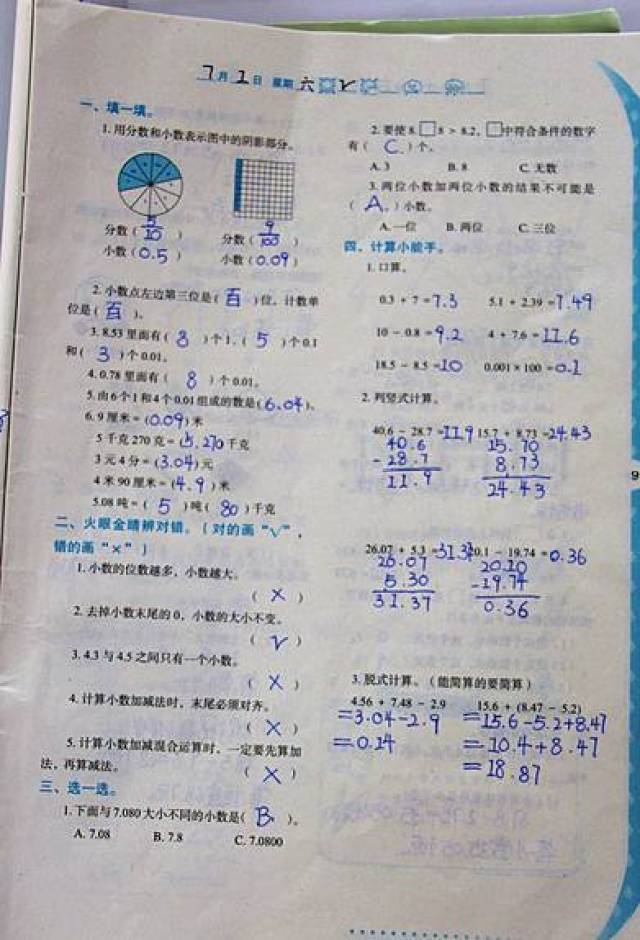 7月1日 星期六
一、填一填。
1.用分数和小数表示图中的阴影部分。
分数( 5/10 ) 分数( 9/100 )
小数(0.5) 小数(0.09)
2.小数点左边第三位是(百)位,计数单
位是(百)。
3.8.53里面有(8)个1,(5)个0.1
和(3)个0.01。
4.0.78里面有(8)个0.01。
5.由6个1和4个0.01组成的数是(6.04)。
6.9厘米=(0.09)米
5千克270克=(5.270)千克
3元4分=(3.04)元
4米90厘米=(4.9)米
5.08吨=(5)吨(80)千克
二、火眼金睛辨对错。(对的画“√”,
错的画“×”)
1.小数的位数越多,小数越大。
(×)
2.去掉小数末尾的0,小数的大小不变。
(√)
3.4.3与4.5之间只有一个小数。
(×)
4.计算小数加减法时,末尾必须对齐。
(×)
5.计算小数加减混合运算时,一定要先算加
法,再算减法。
(×)
三、选一选。
1.下面与7.080大小不同的小数是(B)。
A.7.08 B.7.8 C.7.0800
2.要使8.□8>8.2,□中符合条件的数字
有(C)个。
A.3 B.8 C.无数
3.两位小数加两位小数的结果不可能是
(A)小数。
A.一位 B.两位 C.三位
四、计算小能手。
1.口算。
0.3+7=7.3 5.1+2.39=7.49
10-0.8=9.2 4+7.6=11.6
18.5-8.5=10 0.001×100=0.1
2.列竖式计算。
40.6-28.7=11.9 15.7+8.73=24.43
40.6 15.70
-28.7 8.73
11.9 24.43
26.07+5.3=31.37 20.1-19.74=0.36
26.07 20.10
5.30 -19.74
31.37 0.36
3.脱式计算。(能简算的要简算)
4.56+7.48-2.9 15.6+(8.47-5.2)
=3.04-2.9 =15.6-5.2+8.47
=0.14 =10.4+8.47
=18.87
9